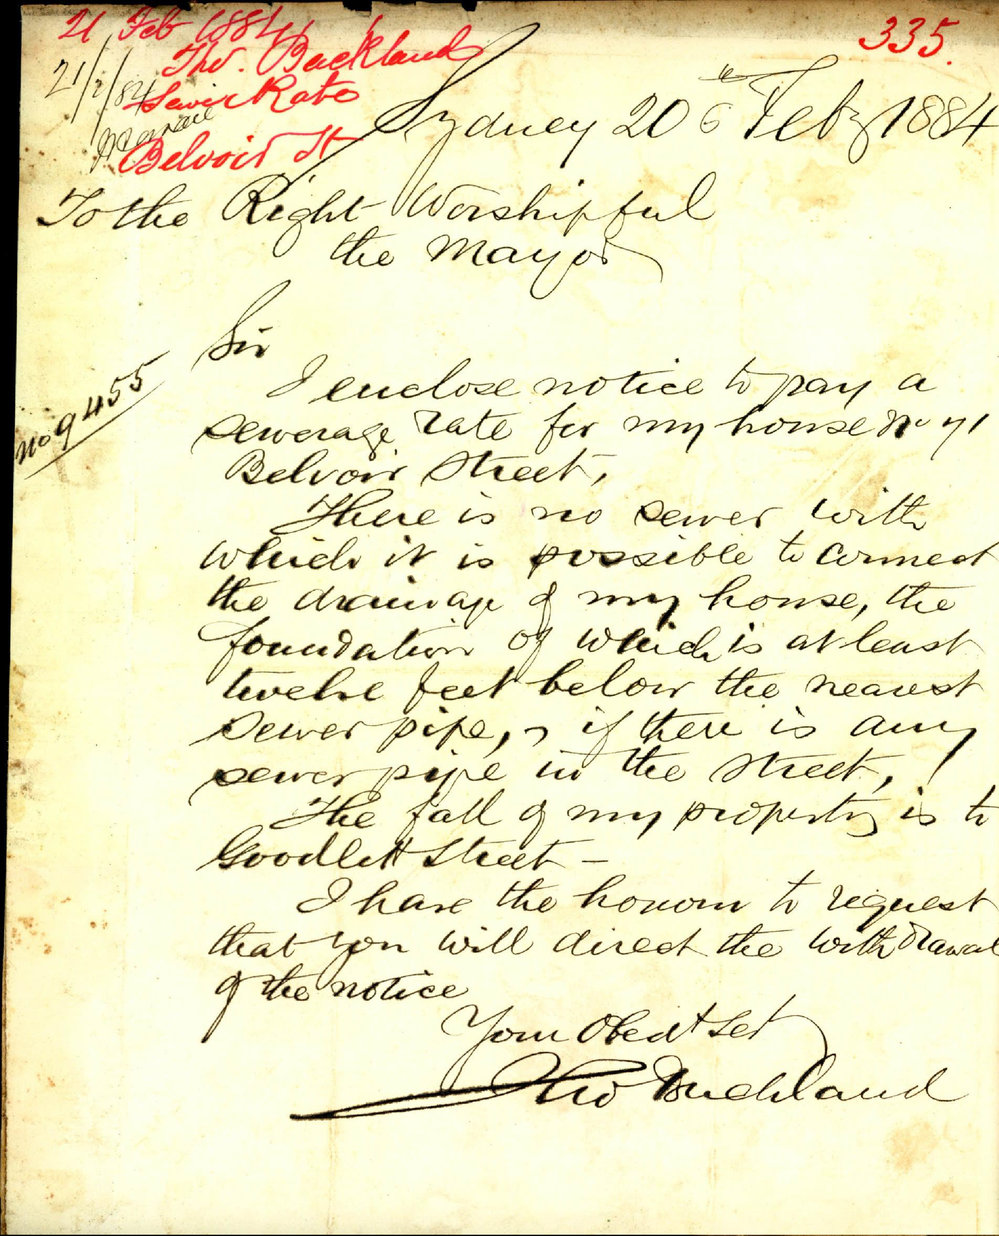 21 Feb 1884
335.
Tho. Buckland
21/2/84
Sewer Rate
Belvoir St
Sydney 20th Feby 1884
To the Right Worshipful
the Mayor
Sir
No 9455
I enclose notice to pay a
sewerage rate for my house No 71
Belvoir Street,
There is no sewer with
which it is possible to connect
the drainage of my house, the
foundation of which is at least
twelve feet below the nearest
sewer pipe, if there is any
sewer pipe in the street,
The fall of my property is to
Goodlett Street —
I have the honour to request
that you will direct the withdrawal
of the notice
Your Obedt Set
Tho Buckland